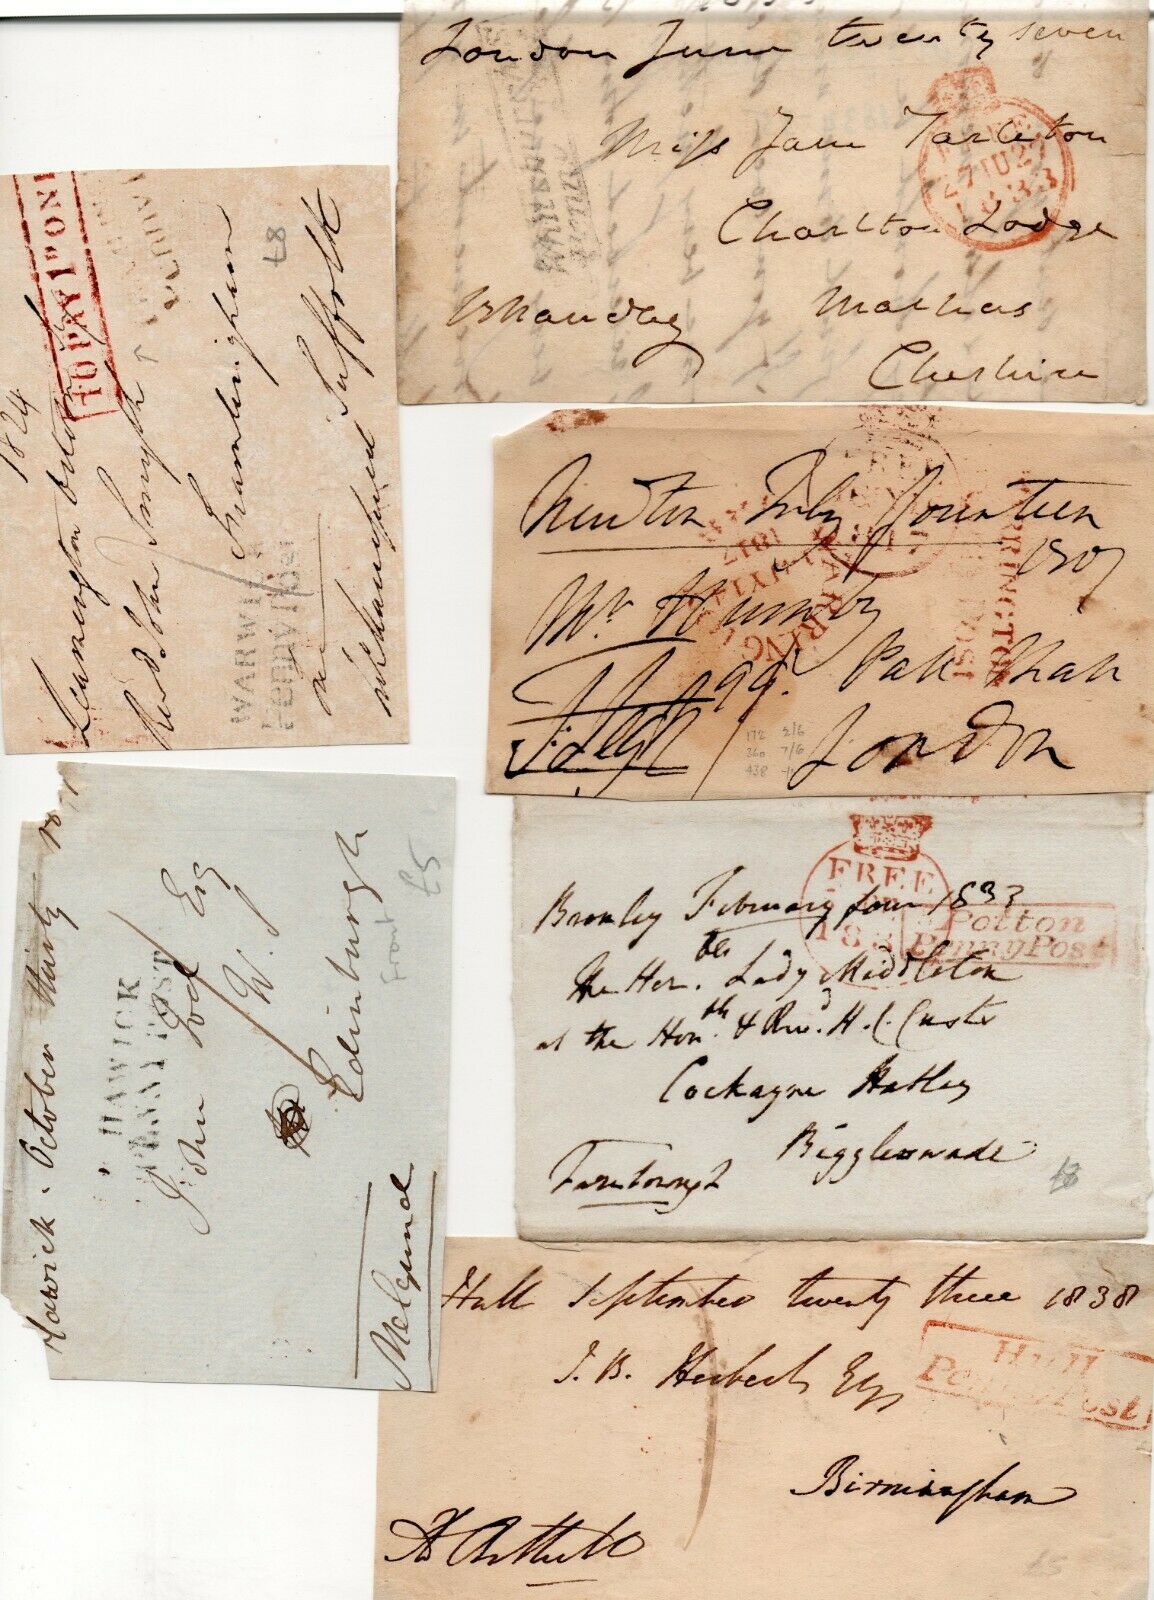 London June twenty seven
Miss Jane Tarleton
Charlton Lodge
Cheshire
FREE
27 JU 27
1833
1824
Leamington october
Revd John Smyth
Framlingham
Suffolk
£8
TO PAY 1D ON
WARWICK
PENNY POST
Newton July fourteen
1807
Mr Humby
99 Pall Mall
London
WARRINGTON
172 2/6
360 7/6
438
FREE
Bromley February four 1833
The Honble Lady Middleton
at the Honble & Revd H. C. Cust
Cockayne Hatley
Biggleswade
Farnborough
£8
Potton
Penny Post
Hawick. October thirty
HAWICK
PENNY POST
John Esq
Edinburgh
Melgund
£5
Front
Hull September twenty three 1838
J. B. Herbert Esq
Birmingham
Hull
Penny Post
£5